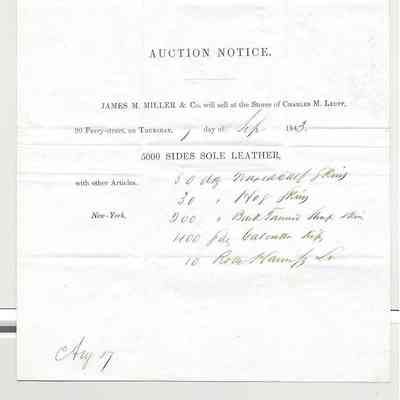 AUCTION NOTICE.
JAMES M. MILLER & Co. will sell at the Stores of CHARLES M. LEUPP,
20 Ferry-street, on THURSDAY, 7 day of Sep 1843.
5000 SIDES SOLE LEATHER,
with other Articles. 50 doz Skins
30 " Hog Skins
New-York. 200 " Bark Tanned Sheep Skin
400 Calcutta
10 Rolls
Aug 17